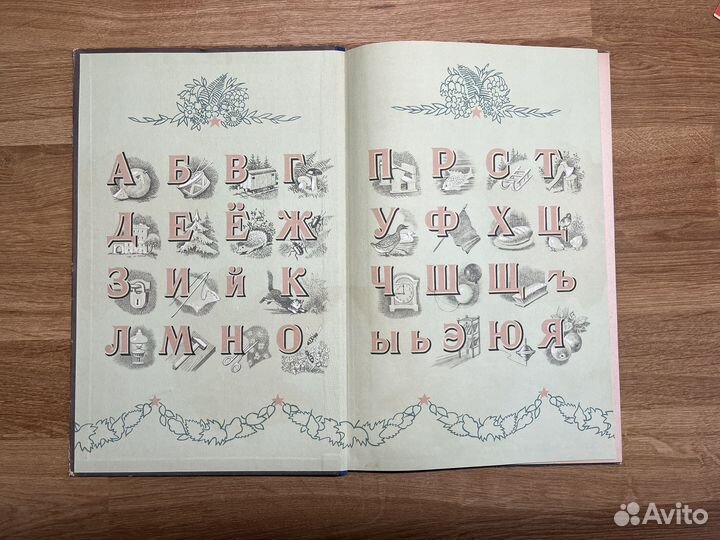 А Б В Г
Д Е Ё Ж
З И й К
Л М Н О
П Р С Т
У Ф Х Ц
Ч Ш Щ ъ
ы ь Э Ю Я
Avito